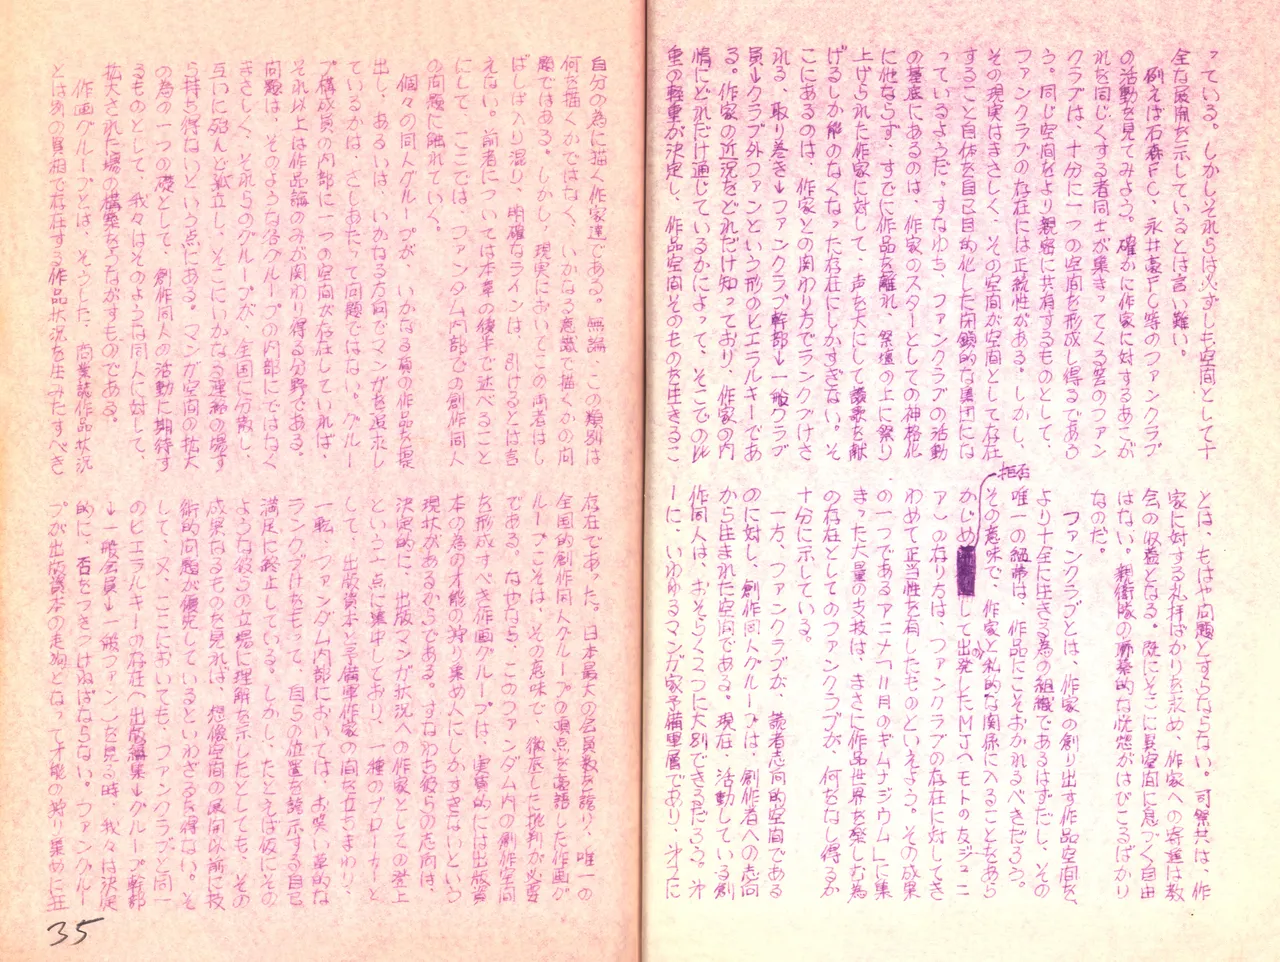 っている。しかしそれらは必ずしも空間として十
全な展開を示しているとは言い難い。
例えば石森FC、永井豪FC等のファンクラブ
の活動を見てみよう。確かに作家に対するあこが
れを同じくする者同士が集まってくる筈のファン
クラブは、十分に一つの空間を形成し得るであろ
う。同じ空間をより親密に共有するものとして、
ファンクラブの存在には正統性がある。しかし、
その現実はまさしく、その空間が空間として存在
すること自体を自己目的化した閉鎖的な集団には
っているようだ。すなわち、ファンクラブの活動
の基底にあるのは、作家のスターとしての神格化
に他ならず、すでに作品を離れ、祭壇の上に祭り
上げられた作家に対して、声を大にして讃歌を献
げるしか能のなくなった存在にしかすぎない。そ
こにあるのは、作家との関わり方でランクづけさ
れる、取り巻き→ファンクラブ幹部→一般クラブ
員→クラブ外ファンという形のヒエラルキーであ
る。作家の近況をどれだけ知っており、作家の内
情にどれだけ通じているかによって、そこでの比
重の軽重が決定し、作品空間そのものを生きるこ
とは、もはや問題とすらならない。司祭共は、作
家に対する礼拝ばかりを求め、作家への寄進は教
会の収益となる。既にそこに異空間に息づく自由
はない。親衛隊の排他的な発想がはびこるばかり
なのだ。
ファンクラブとは、作家の創り出す作品空間を、
より十全に生きる為の組織であるはずだし、その
唯一の紐帯は、作品にこそおかれるべきだろう。
その意味で、作家と私的な関係に入ることをあら
かじめ拒否して出発したMJ（モトの友ジュニ
ア）の在り方は、ファンクラブの存在に対してき
わめて正当性を有したものといえよう。その成果
の一つであるアニメ「11月のギムナジウム」に集
まった大量の支援は、まさに作品世界を楽しむ為
の存在としてのファンクラブが、何をなし得るか
十分に示している。
一方、ファンクラブが、読者志向的空間である
のに対し、創作同人グループは、創作者への志向
から生まれた空間である。現在、活動している創
作同人は、おそらく2つに大別できるだろう。オ
一に、いわゆるマンガ家予備軍層であり、オ2に
自分の為に描く作家達である。無論、この類別は
何を描くかではなく、いかなる意識で描くかの問
題ではある。しかし、現実においてこの両者はし
ばしば入り混り、明確なラインは、引けるとは言
えない。前者については本章の後半で述べること
にして、ここでは、ファンダム内部での創作同人
の問題に触れていく。
個々の同人グループが、いかなる質の作品を提
出し、あるいは、いかなる方向でマンガを追求し
ているかは、さしあたって問題ではない。グルー
プ構成員の内部に一つの空間が存在していれば、
それ以上は作品論のみが関わり得る分野である。
問題は、そのような各グループの内部にではなく
まさしく、それらのグループが、全国に分散し、
互いに殆んど孤立し、そこにいかなる連絡の場す
ら持ち得ないという点にある。マンガ空間の拡大
の為の一つの礎として、創作同人の活動に期待す
るものとして、我々はそのような同人に対して、
拡大された場の構築をうながすものである。
作画グループとは、そうした、商業誌作品状況
とは別の質相で存在する作品状況を生みだすべき
存在であった。日本最大の会員数を誇り、唯一の
全国的創作同人グループの頂点を豪語した作画グ
ループこそは、その意味で、徹底した批判が必要
である。なぜなら、このファンダム内の創作空間
を形成すべき作画グループは、実質的には出版資
本の為の才能の狩り集め人にしかすぎないという
現状があるからである。すなわち彼らの志向は、
決定的に、出版マンガ状況への作家としての登上
という一点に集中しており、一種のブローカーと
して、出版資本と予備軍作家の間を立ちまわり、
一転、ファンダム内部においては、お笑い草的な
ランクづけをもって、自らの位置を誇示する自己
満足に終止している。しかし、たとえば仮にその
ような彼らの立場に理解を示したとしても、その
成果なるものを見れば、想像空間の展開以前に技
術的問題が優先しているといわざるを得ない。そ
して、又、ここにおいても、ファンクラブと同一
のヒエラルキーの存在（出版編集→グループ幹部
→一般会員→一般ファン）を見る時、我々は決定
的に、否をつきつけねばならない。ファングルー
プが出版資本の走狗となって才能の狩り集めに狂
35